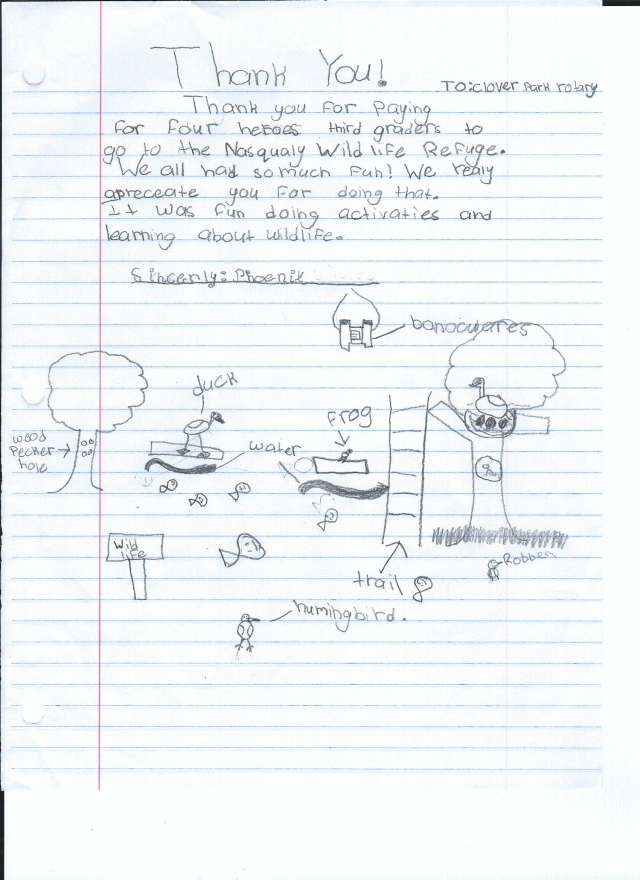 Thank You!
To: clover Park rotary
Thank you For Paying
For Four heroes third graders to
go to the Nasqualy Wildlife Refuge.
We all had so much Fun! We realy
apreceate you For doing that.
It was Fun doing activaties and
learning about wildlife.
Sincerly: Phoenix
banoculares
duck
Frog
wood
Pecker
hole
water
Wild
life
trail
Robben
humingbird.